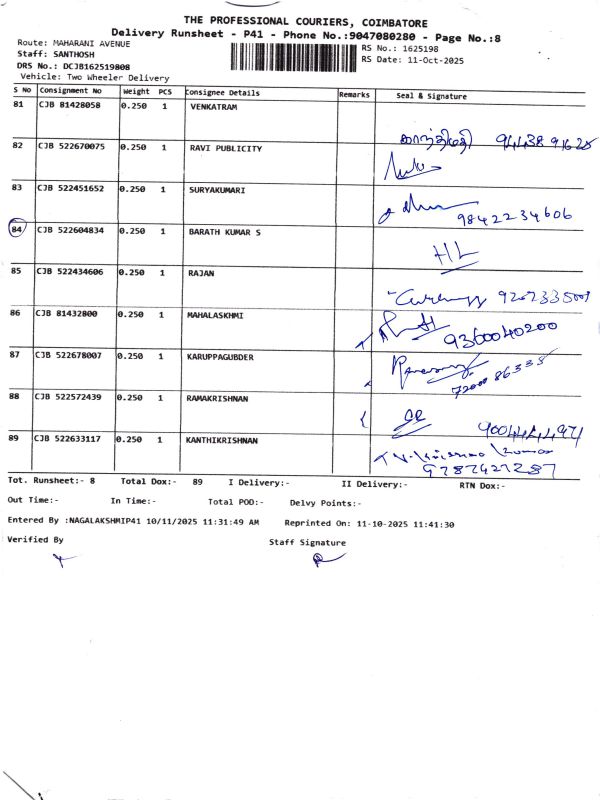 THE PROFESSIONAL COURIERS, COIMBATORE
Delivery Runsheet - P41 - Phone No.:9047080280 - Page No.:8
Route: MAHARANI AVENUE
RS No.: 1625198
Staff: SANTHOSH
RS Date: 11-Oct-2025
DRS No.: DCJB162519808
Vehicle: Two Wheeler Delivery
S No Consignment No Weight PCS Consignee Details Remarks Seal & Signature
81 CJB 81428058 0.250 1 VENKATRAM
82 CJB 522670075 0.250 1 RAVI PUBLICITY
83 CJB 522451652 0.250 1 SURYAKUMARI
9842234606
84 CJB 522604834 0.250 1 BARATH KUMAR S
HL
85 CJB 522434606 0.250 1 RAJAN
86 CJB 81432800 0.250 1 MAHALASKHMI
9360040200
87 CJB 522678007 0.250 1 KARUPPAGUBDER
88 CJB 522572439 0.250 1 RAMAKRISHNAN
89 CJB 522633117 0.250 1 KANTHIKRISHNAN
9787427287
Tot. Runsheet:- 8 Total Dox:- 89 I Delivery:- II Delivery:- RTN Dox:-
Out Time:- In Time:- Total POD:- Delvy Points:-
Entered By :NAGALAKSHMIP41 10/11/2025 11:31:49 AM Reprinted On: 11-10-2025 11:41:30
Verified By Staff Signature